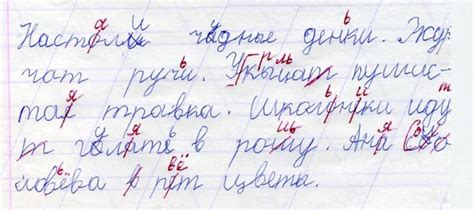 Настоли чудные денки. Жур
чат ручи. Укынат пушис-
тая травка. Шкагники иду
т гулате в рощу. Аня Соло
ловёва в рт цветы.